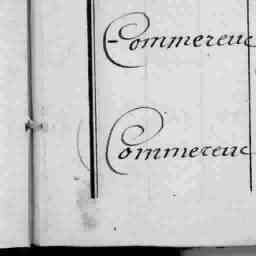 Commereuc
Commereuc